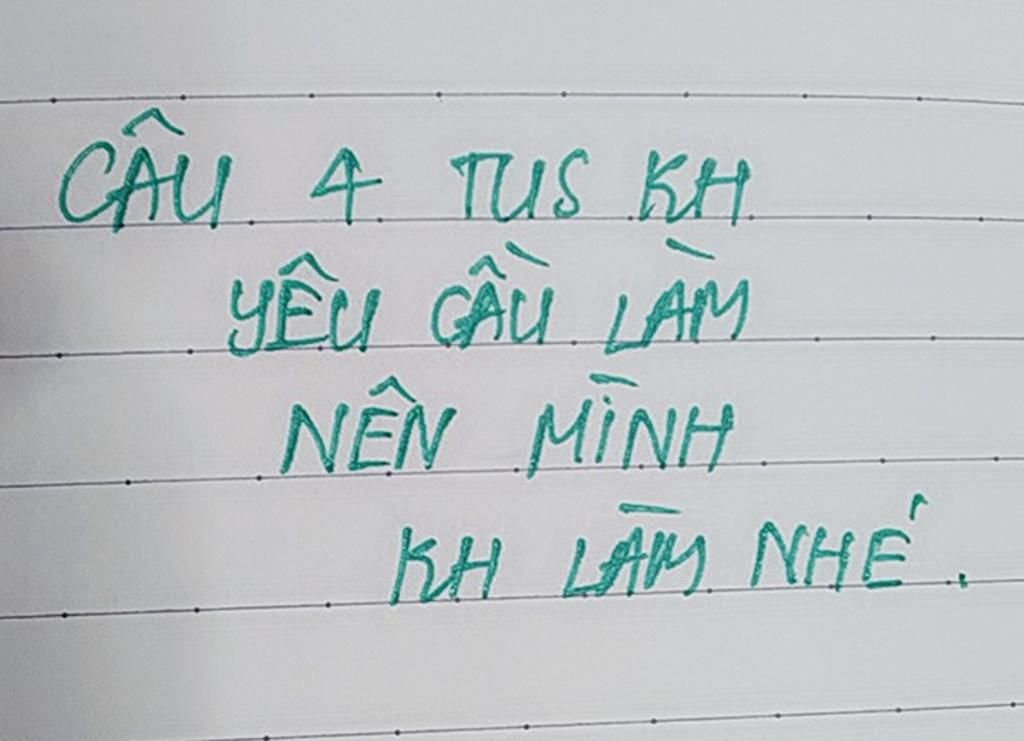 CÂU 4 TUS KH
YÊU CẦU LÀM
NÊN MÌNH
KH LÀM NHÉ.